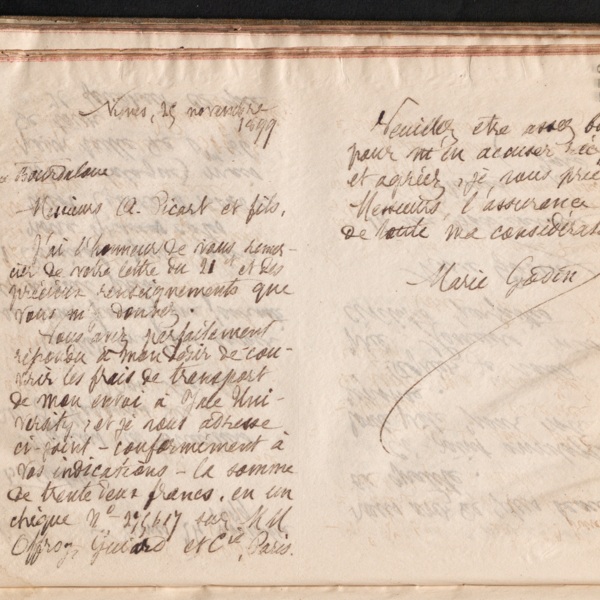 Nîmes, 25 novembre
1899
Bourdaloue
Messieurs A. Picart et fils,
J'ai l'honneur de vous remer-
cier de votre lettre du 21 et des
précieux renseignements que
vous m'y donnez.
Vous avez parfaitement
répondu à mon désir de cou-
vrir les frais de transport
de mon envoi à Yale Uni-
versity, et je vous adresse
ci-joint - conformément à
vos indications - la somme
de trente deux francs, en un
chèque N° sur MM
Offroy, Guiard et Cie, Paris.
Veuillez être assez bo
pour m'en accuser
et agréer, je vous prie
Messieurs, l'assurance
de toute ma considérat
Marie Godin